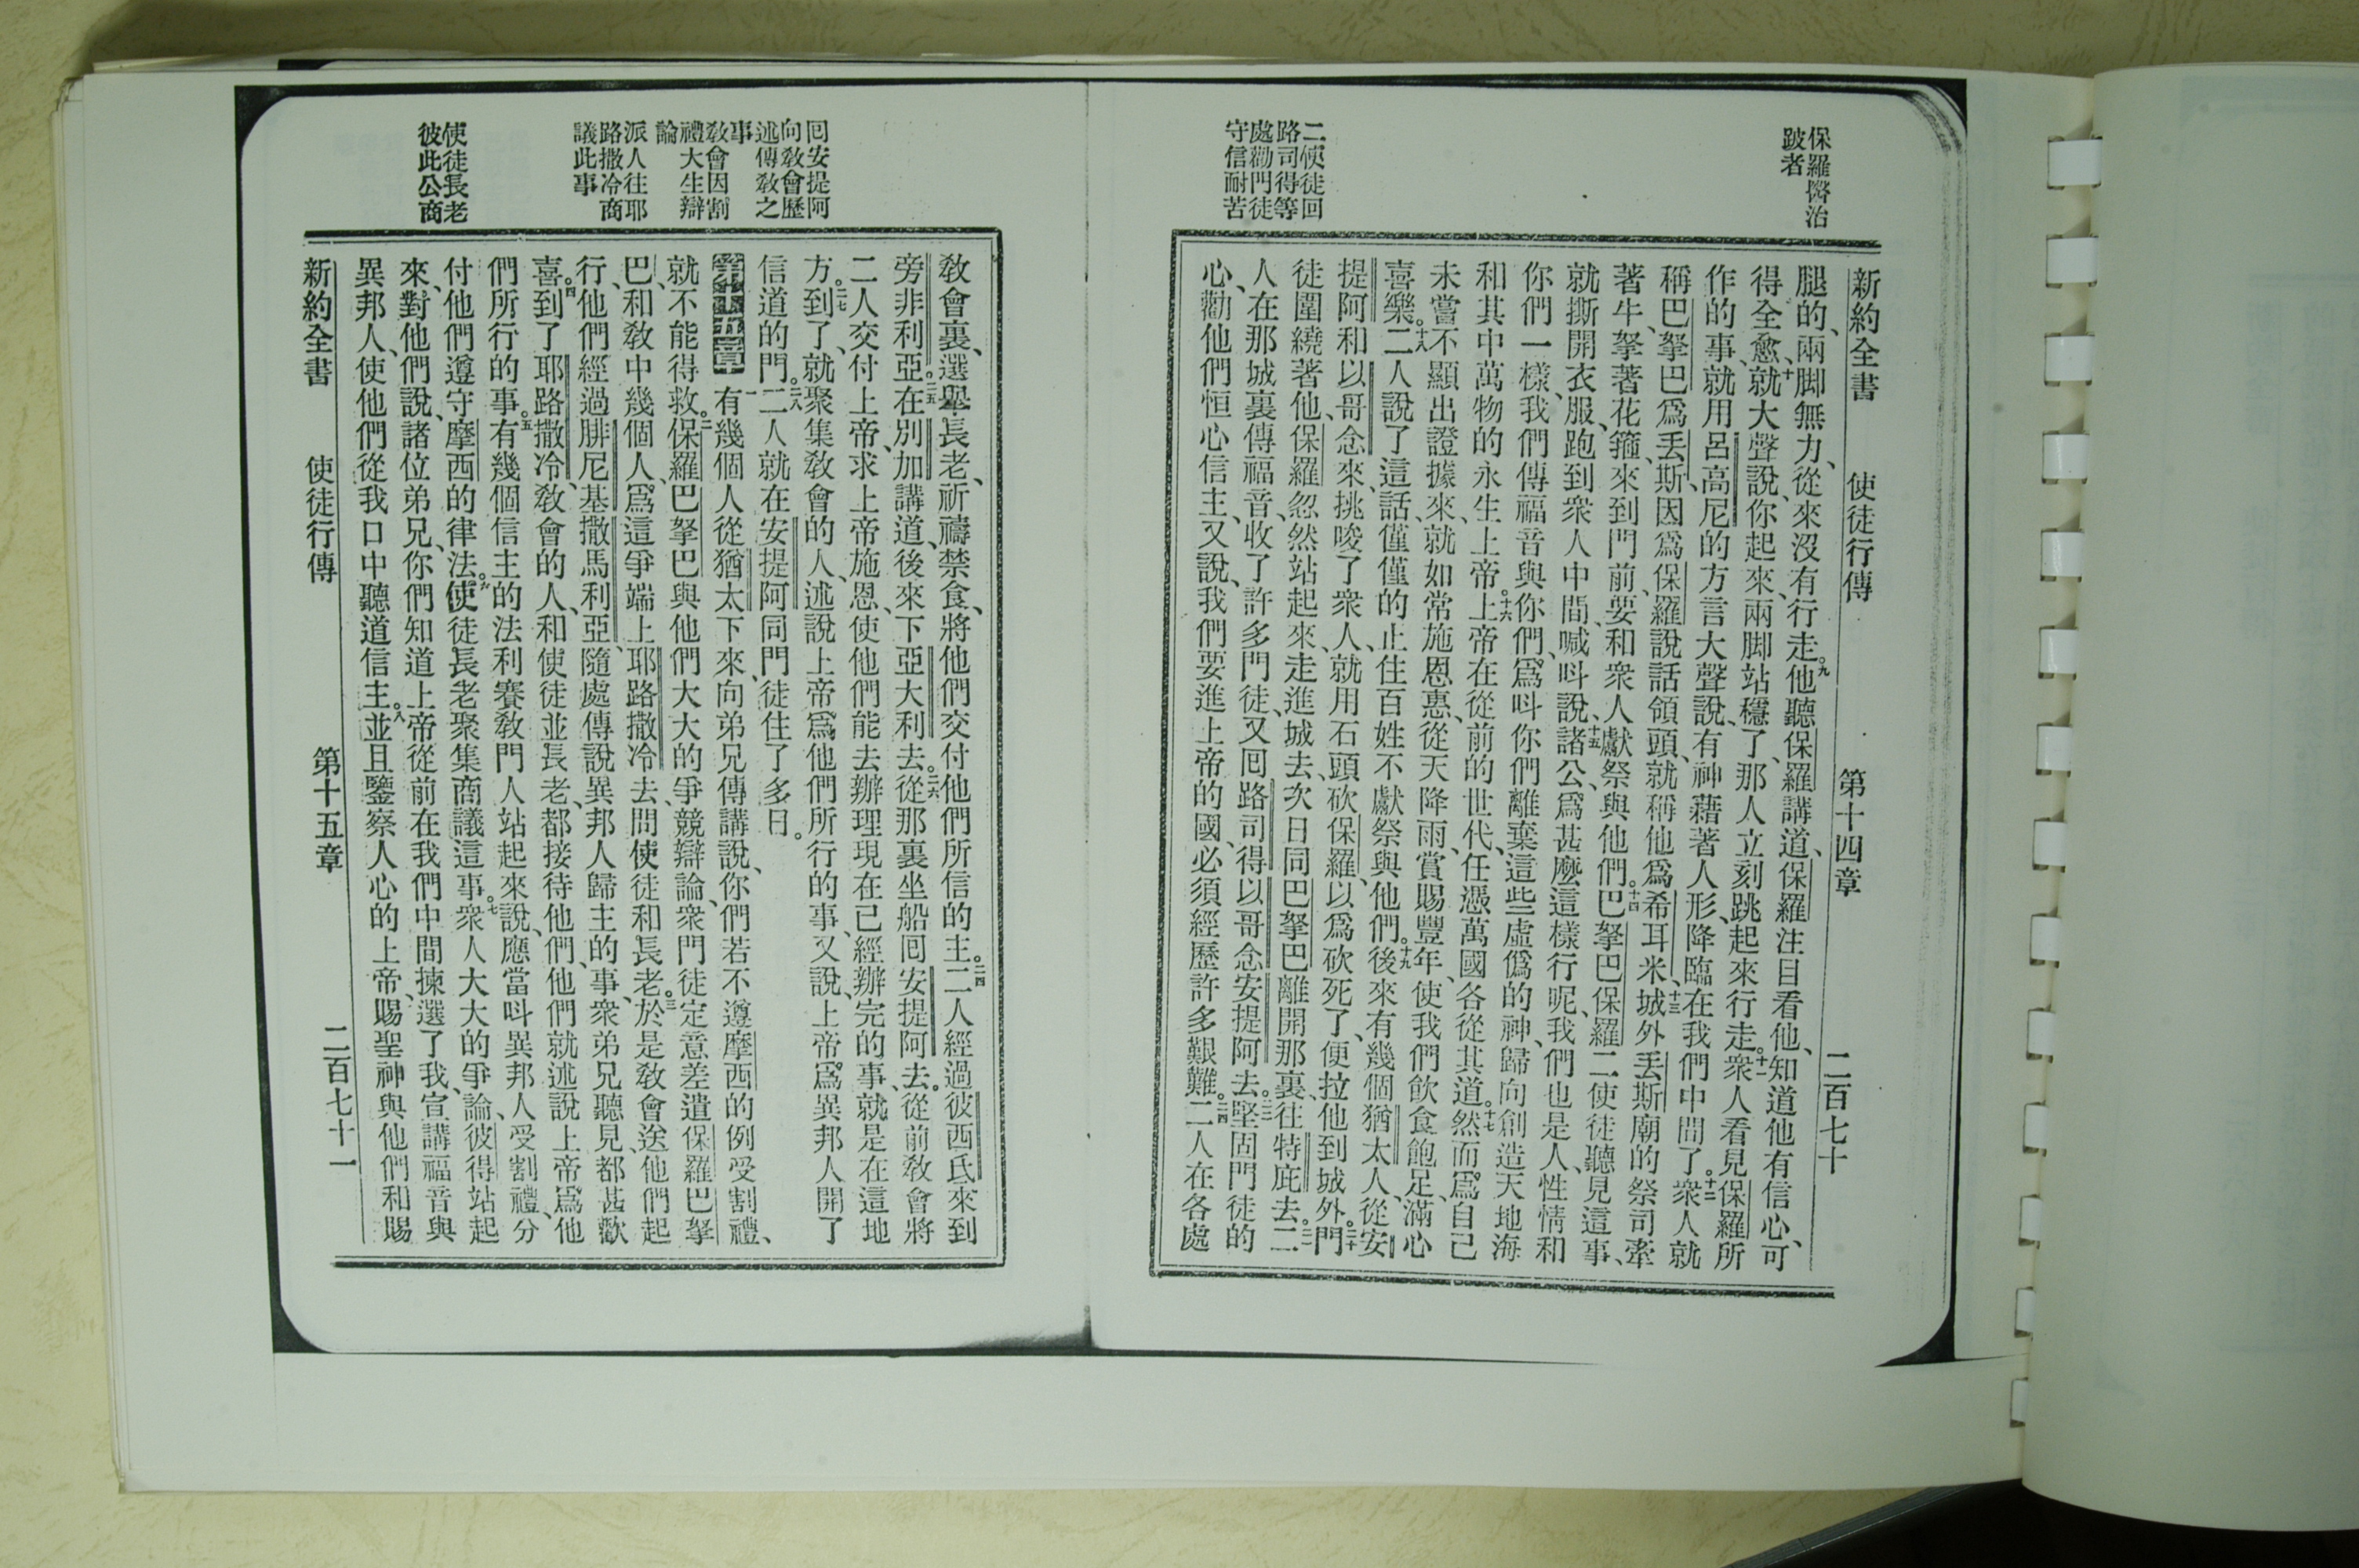 保羅醫治
跛者
二使徒回
路司得等
處勸門徒
守信耐苦
新約全書 使徒行傳 第十四章 二百七十
腿的、兩脚無力、從來沒有行走。九他聽保羅講道、保羅注目看他、知道他有信心、可
得全愈、十就大聲說、你起來、兩脚站穩了、那人立刻跳起來行走。十一衆人看見保羅所
作的事、就用呂高尼的方言大聲說、有神藉著人形、降臨在我們中間了。十二衆人就
稱巴拏巴爲丟斯、因爲保羅說話領頭、就稱他爲希耳米、十三城外丟斯廟的祭司牽
著牛、拏著花箍、來到門前、要和衆人獻祭與他們。十四巴拏巴保羅二使徒聽見這事、
就撕開衣服、跑到衆人中間、喊呌說、十五諸公、爲甚麼這樣行呢、我們也是人、性情和
你們一樣、我們傳福音與你們、爲呌你們離棄這些虛僞的神、歸向創造天地海
和其中萬物的永生上帝。十六上帝在從前的世代、任憑萬國各從其道。十七然而爲自己
未嘗不顯出證據來、就如常施恩惠、從天降雨、賞賜豐年、使我們飲食飽足、滿心
喜樂。十八二人說了這話、僅僅的止住百姓不獻祭與他們。十九後來有幾個猶太人、從安
提阿和以哥念來挑唆了衆人、就用石頭砍保羅、以爲砍死了、便拉他到城外。二十門
徒圍繞著他、保羅忽然站起來、走進城去、次日同巴拏巴離開那裏、往特庇去。二一二
人在那城裏傳福音、收了許多門徒、又囘路司得以哥念安提阿去。二二堅固門徒的
心、勸他們恒心信主、又說、我們要進上帝的國、必須經歷許多艱難。二三二人在各處
囘安提阿
向教會歷
述傳教之
事
教會因割
禮大生辯
論
派人往耶
路撒冷商
議此事
使徒長老
彼此公商
教會裏、選舉長老、祈禱禁食、將他們交付他們所信的主。二四二人經過彼西氏來到
旁非利亞。二五在別加講道、後來下亞大利去。二六從那裏坐船囘安提阿去。從前教會將
二人交付上帝、求上帝施恩、使他們能去辦理現在已經辦完的事、就是在這地
方。二七到了、就聚集教會的人、述說上帝爲他們所行的事、又說、上帝爲異邦人開了
信道的門。二八二人就在安提阿同門徒住了多日。
第十五章 一有幾個人從猶太下來、向弟兄傳講說、你們若不遵摩西的例受割禮、
就不能得救。二保羅巴拏巴與他們大大的爭競辯論、衆門徒定意差遣保羅巴拏
巴、和教中幾個人、爲這爭端上耶路撒冷去、問使徒和長老。三於是教會送他們起
行、他們經過腓尼基撒馬利亞、隨處傳說異邦人歸主的事、衆弟兄聽見、都甚歡
喜。四到了耶路撒冷、教會的人、和使徒並長老、都接待他們、他們就述說上帝爲他
們所行的事。五有幾個信主的法利賽教門人站起來說、應當呌異邦人受割禮、分
付他們遵守摩西的律法。六使徒長老聚集商議這事。七衆人大大的爭論、彼得站起
來、對他們說、諸位弟兄、你們知道上帝從前在我們中間揀選了我、宣講福音與
異邦人、使他們從我口中聽道信主。八並且鑒察人心的上帝、賜聖神與他們和賜
新約全書 使徒行傳 第十五章 二百七十一